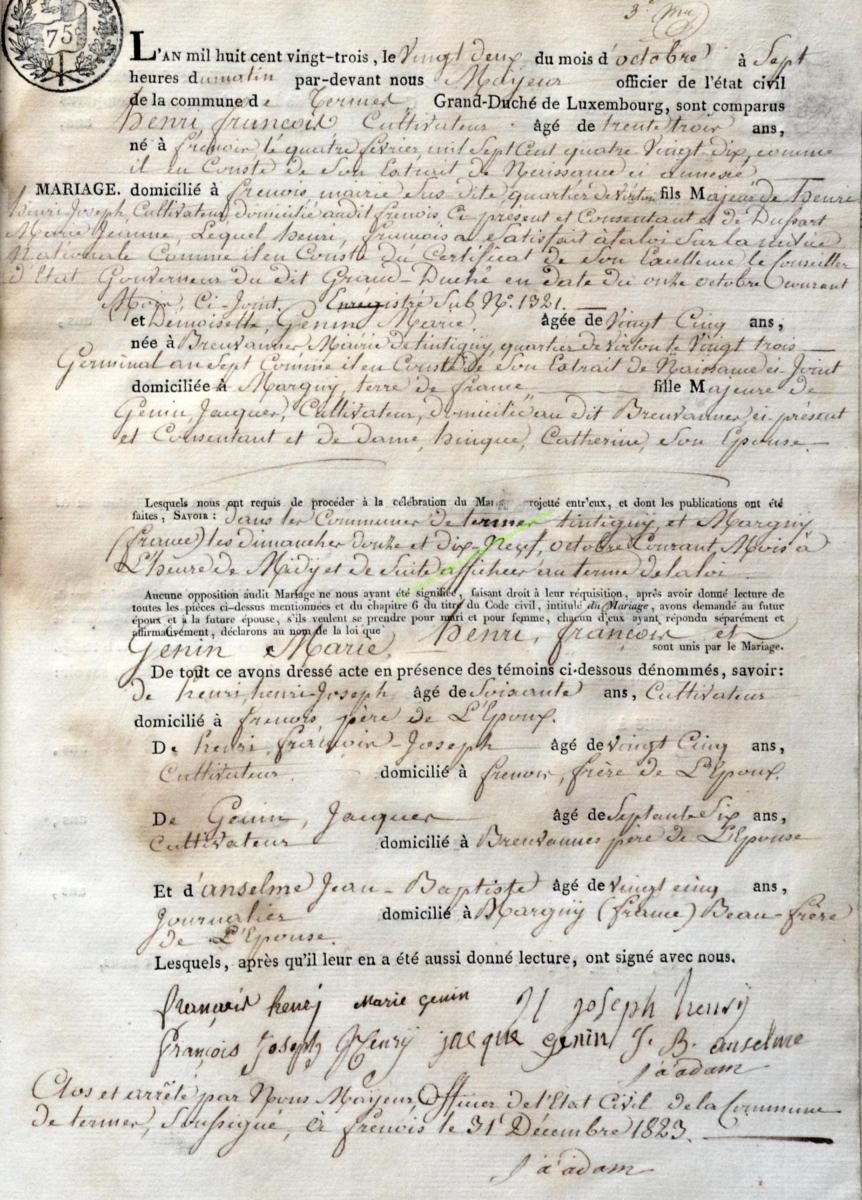 75
3e
L'AN mil huit cent vingt-trois, le Vingt deux du mois d'octobre à Sept
heures du matin par-devant nous Mayeur officier de l'état civil
de la commune de Termes, Grand-Duché de Luxembourg, sont comparus
henri, françois Cultivateur âgé de trente trois ans,
né à frenois le quatre février, mil Sept Cent quatre Vingt-Dix, comme
il en Conste de Son Extrait de Naissance ci annexé
MARIAGE. domicilié à frenois, mairie Sus dite, quartier de Virton, fils Majeur de henri
henri Joseph, Cultivateur, domicilié audit frenois Ci présent et Consentant et de Dussart
Marie Jeanne, Lequel henri, françois a Satisfait à la loi Sur la milice
Nationale Comme il en Conste du Certificat de Son Excellence le Conseiller
d'Etat Gouverneur du dit Grand-Duché en date du onze octobre Courant
Mois, Ci-Joint. Enregistré Sub No. 1321.
et Demoiselle, Genin Marie, âgée de Vingt Cinq ans,
née à Breuvannes, Mairie de tintigny, quartier de Virton le Vingt trois
Germinal an Sept Comme il en Conste de Son Extrait de Naissance ci-Joint
domiciliée à Margny, terre de france fille Majeure de
Genin, Jacques, Cultivateur, domicilié au dit Breuvannes, ci présent
et Consentant et de dame, hinque, Catherine, Son Epouse.
Lesquels nous ont requis de procéder à la célébration du Mariage projetté entr'eux, et dont les publications ont été
faites, SAVOIR: dans les Communes de termes tintigny, et Margny
(france) les dimanches douze et dix-Neuf, octobre Courant, Mois à
L'heure de Midy et de Suite affichées au terme de la loi
Aucune opposition audit Mariage ne nous ayant été signifiée, faisant droit à leur réquisition, après avoir donné lecture de
toutes les pièces ci-dessus mentionnées et du chapitre 6 du titre du Code civil, intitulé du Mariage, avons demandé au futur
époux et à la future épouse, s'ils veulent se prendre pour mari et pour femme, chacun d'eux ayant répondu séparément et
affirmativement, déclarons au nom de la loi que henri, françois et
Genin Marie, sont unis par le Mariage.
De tout ce avons dressé acte en présence des témoins ci-dessous dénommés, savoir:
de henri, henri Joseph âgé de Soixante ans, Cultivateur
domicilié à frenois, père de L'Epoux.
De henri, françois-Joseph âgé de vingt Cinq ans,
Cultivateur. domicilié à frenois, frère de L'Epoux.
De Genin, Jacques âgé de Septante Six ans,
Cultivateur domicilié à Breuvannes père de L'Epouse
Et d'anselme Jean-Baptiste âgé de vingt cinq ans,
Journalier domicilié à Margny (france) Beau-frère
de L'Epouse.
Lesquels, après qu'il leur en a été aussi donné lecture, ont signé avec nous.
françois henrij marie genin H joseph henrÿ
François Joseph Henrÿ jacque genin J. B. anselme
j a adam
Clos et arrêté par Nous Mayeur, Officier de l'Etat Civil de la Commune
de termes, Soussigné, à frenois le 31 Décembre 1823.
j a adam